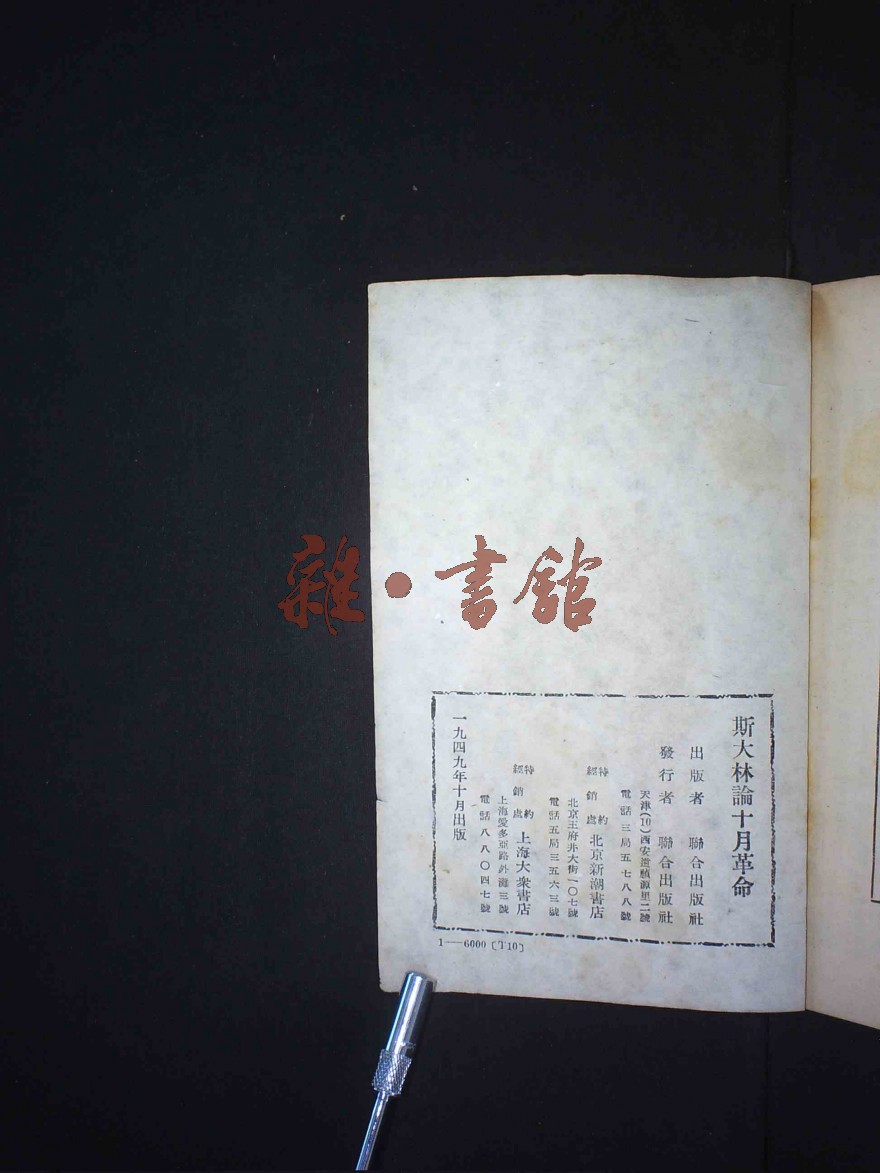 斯大林論十月革命
出版者 聯合出版社
發行者 聯合出版社
天津(10)西安道楨源里二號
電話三局五七八八號
特約經銷處 北京新潮書店
北京王府井大街一〇七號
電話五局三五六三號
特約經銷處 上海大衆書店
上海愛多亞路外灘三號
電話八八〇四七號
一九四九年十月出版
1——6000〔T10〕
雜·書館